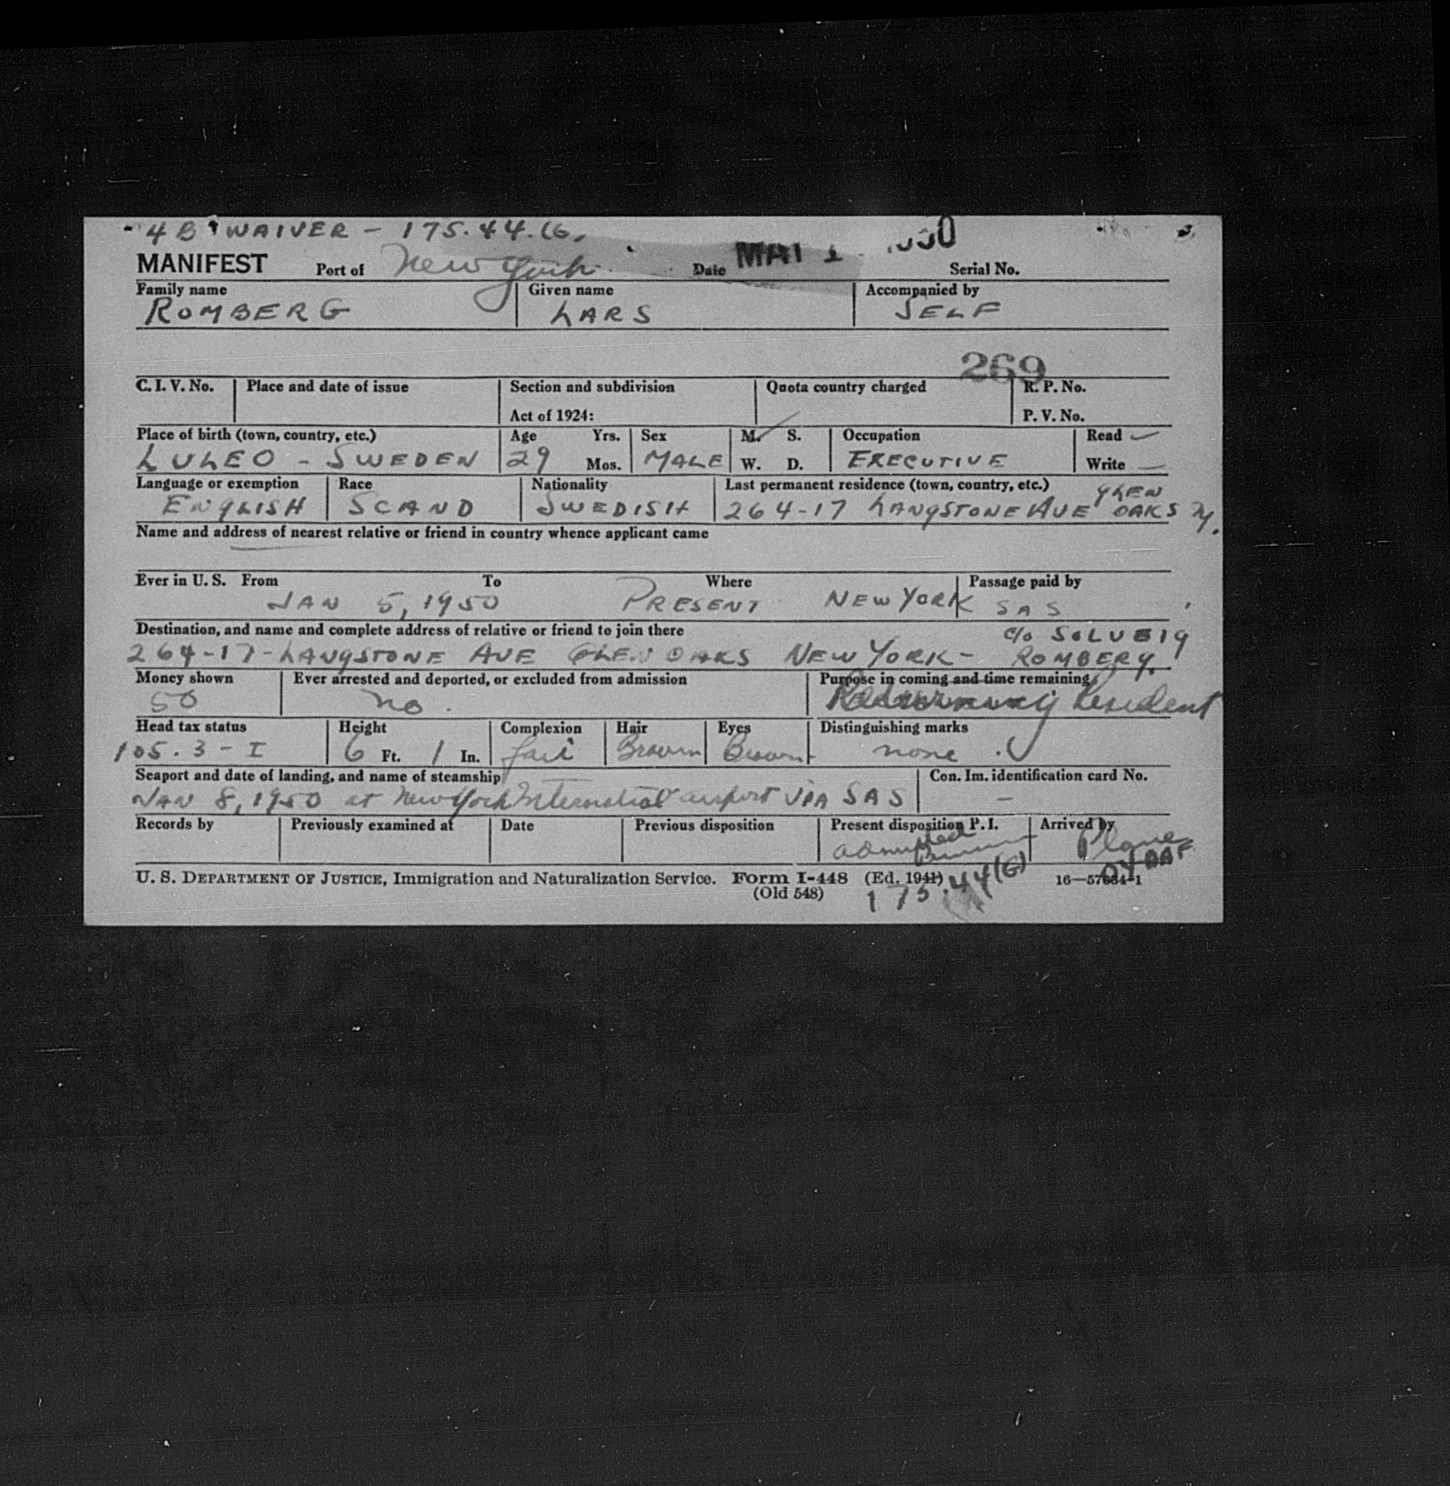 4 B WAIVER - 175.44.(6,
MANIFEST Port of New York Date MAY 1 1950 Serial No.
Family name Given name Accompanied by
ROMBERG LARS SELF
269
C. I. V. No. Place and date of issue Section and subdivision Quota country charged R. P. No.
Act of 1924: P. V. No.
Place of birth (town, country, etc.) Age Yrs. Sex M. S. Occupation Read
LULEO - SWEDEN 29 Mos. MALE W. D. EXECUTIVE Write
Language or exemption Race Nationality Last permanent residence (town, country, etc.) GLEN
ENGLISH SCAND SWEDISH 264-17 LANGSTONE AVE OAKS N.Y.
Name and address of nearest relative or friend in country whence applicant came
Ever in U. S. From To Where Passage paid by
JAN 5, 1950 PRESENT NEW YORK SAS
Destination, and name and complete address of relative or friend to join there c/o SOLVEIG
264-17-LANGSTONE AVE GLEN OAKS NEW YORK - ROMBERG.
Money shown Ever arrested and deported, or excluded from admission Purpose in coming and time remaining
50 no. Returning Resident
Head tax status Height Complexion Hair Eyes Distinguishing marks
105.3-I 6 Ft. 1 In. fair Brown Brown none
Seaport and date of landing, and name of steamship Con. Im. identification card No.
JAN 8, 1950 at New York International airport VIA SAS -
Records by Previously examined at Date Previous disposition Present disposition P. I. Arrived by
admitted Plane
U. S. DEPARTMENT OF JUSTICE, Immigration and Naturalization Service. Form I-448 (Ed. 1941) 16—57664-1
(Old 548) 175.44(6)